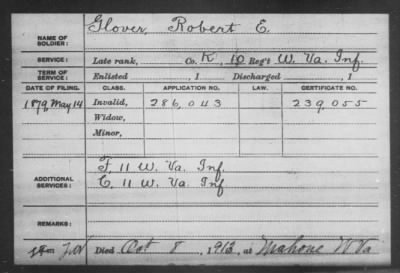 NAME OF SOLDIER: Glover, Robert E.
SERVICE: Late rank, Co. K, 10 Reg't W. Va. Inf.
TERM OF SERVICE: Enlisted , 1 Discharged , 1
DATE OF FILING. CLASS. APPLICATION NO. LAW. CERTIFICATE NO.
1879, May 14 Invalid, 286,043 239,055
Widow,
Minor,
ADDITIONAL SERVICES: F. 11 W. Va. Inf.
C. 11 W. Va. Inf
REMARKS:
Died Oct 8, 1912, at Mahone W Va